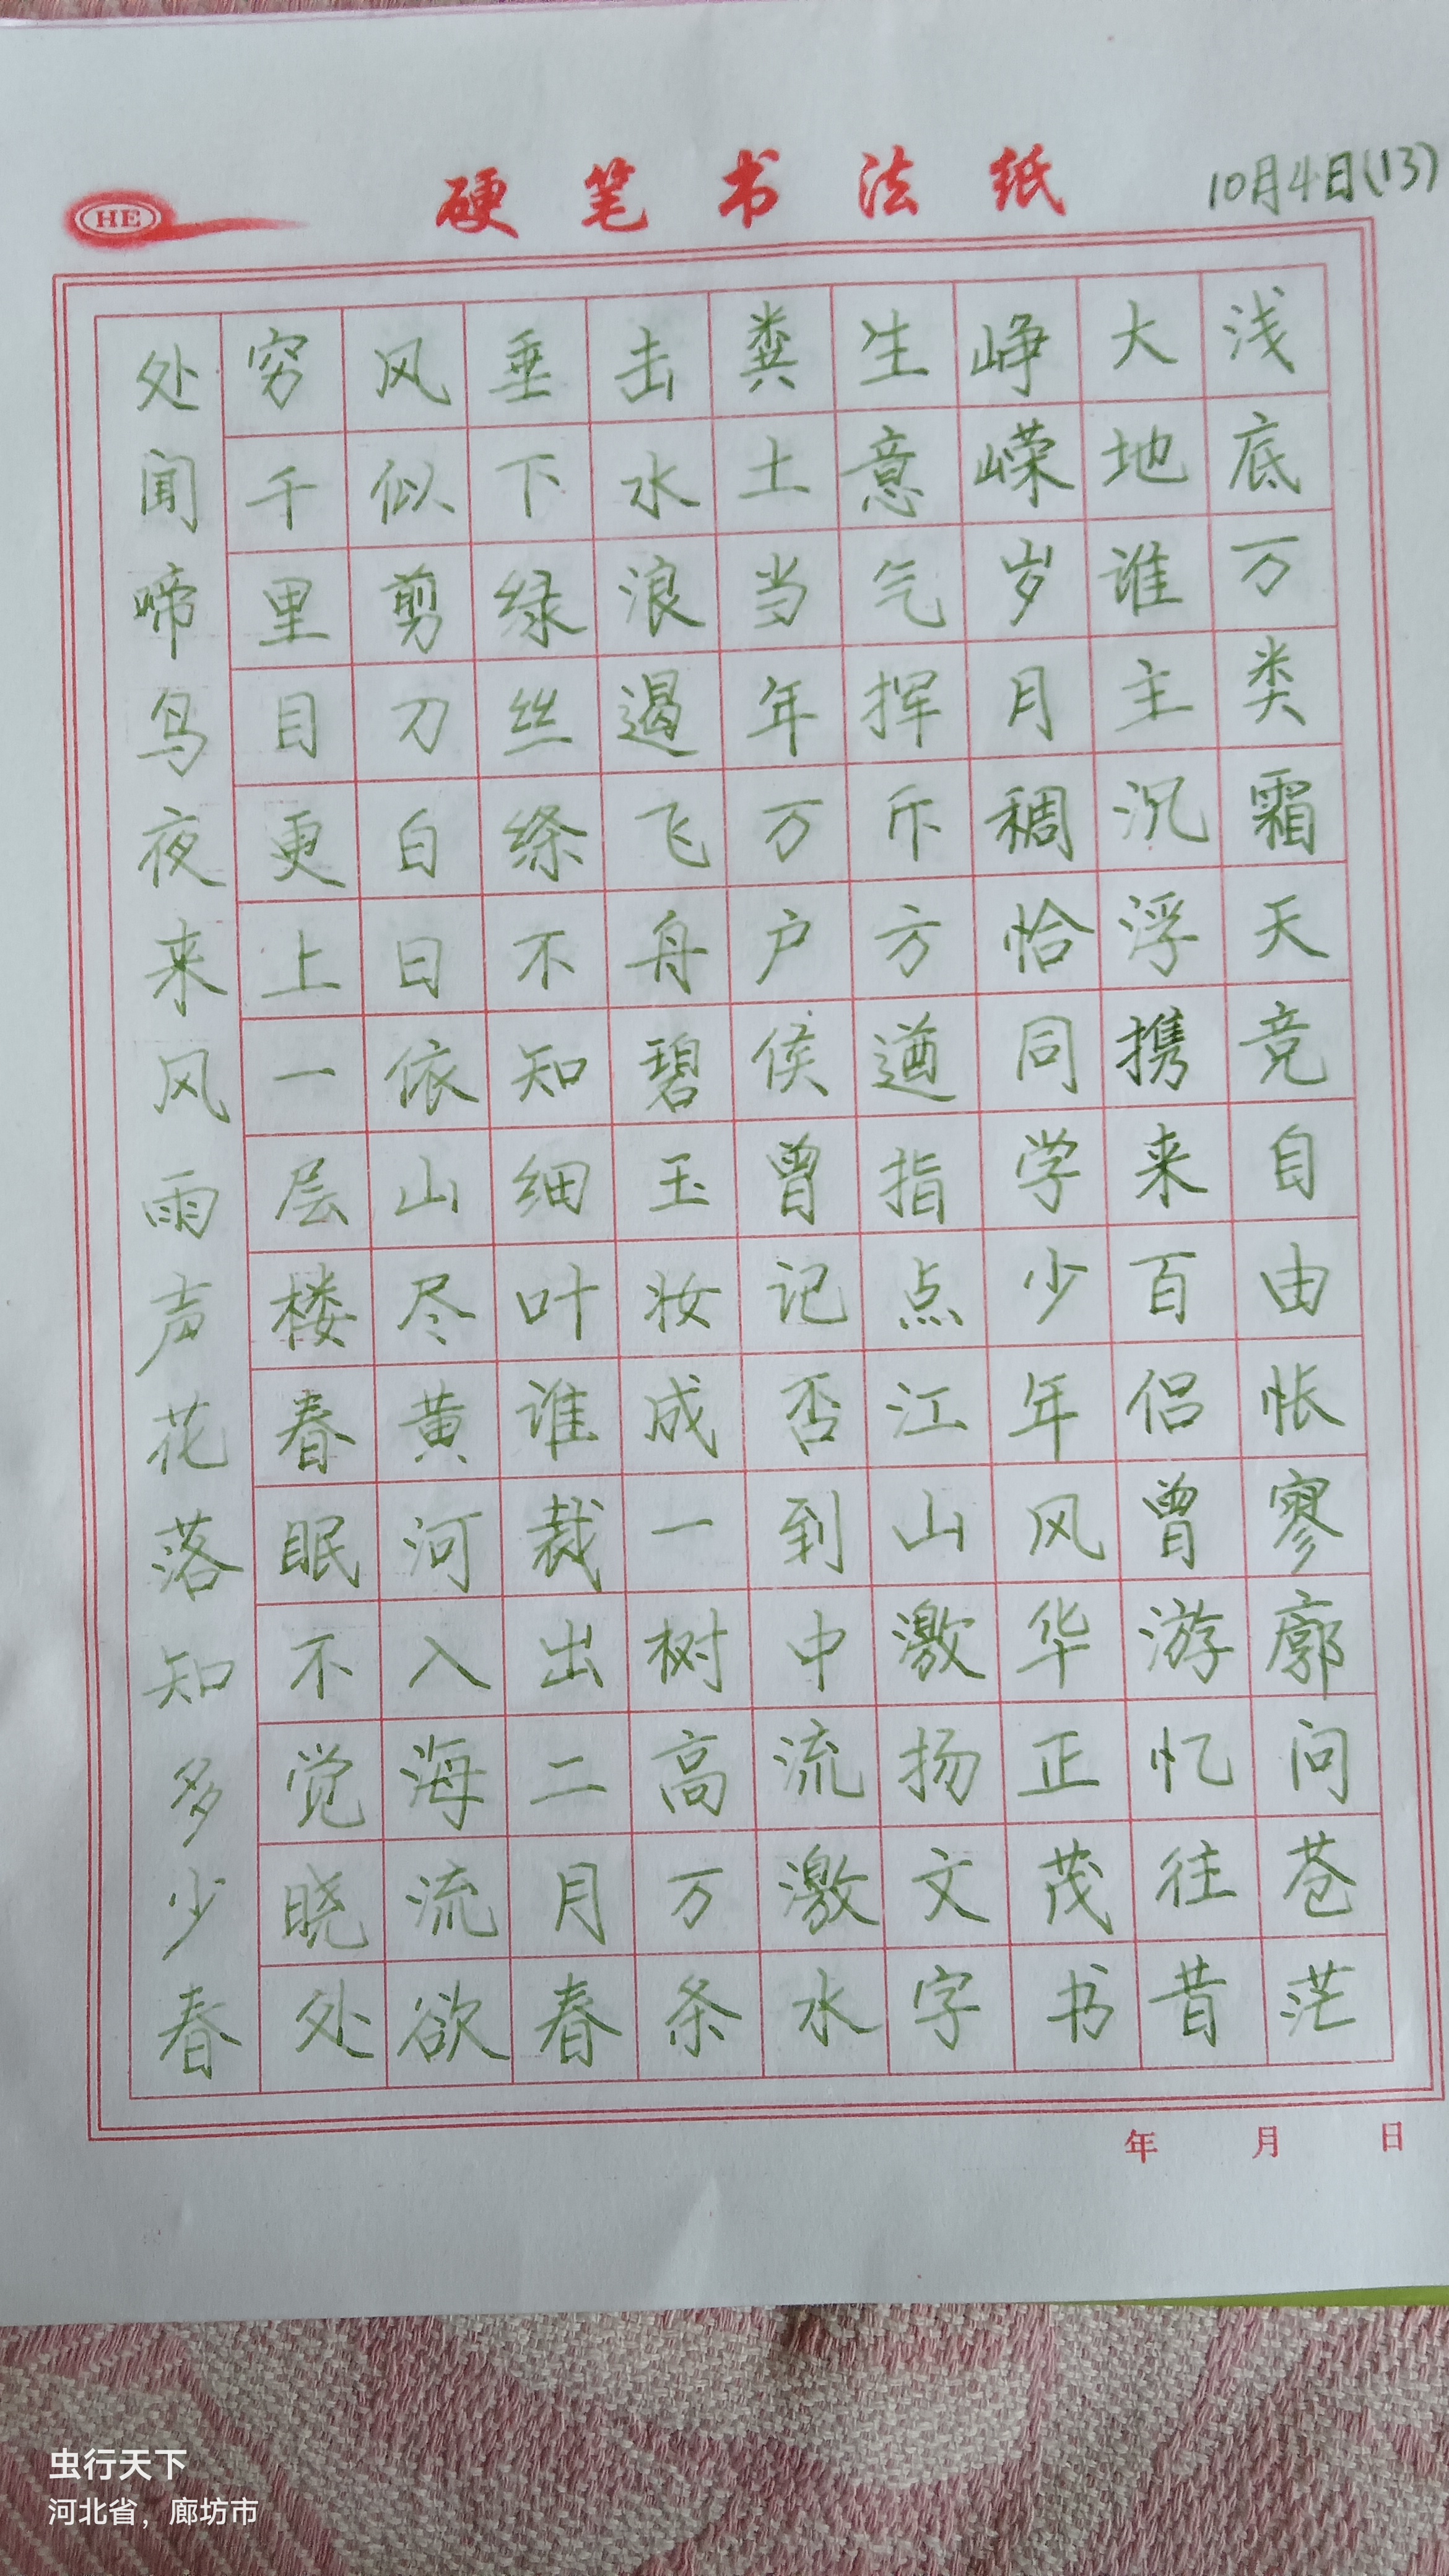 HE
硬笔书法纸
10月4日(13)
浅底万类霜天竞自由怅寥廓问苍茫
大地谁主沉浮携来百侣曾游忆往昔
峥嵘岁月稠恰同学少年风华正茂书
生意气挥斥方遒指点江山激扬文字
粪土当年万户侯曾记否到中流激水
击水浪遏飞舟碧玉妆成一树高万条
垂下绿丝绦不知细叶谁裁出二月春
风似剪刀白日依山尽黄河入海流欲
穷千里目更上一层楼春眠不觉晓处
处闻啼鸟夜来风雨声花落知多少春
年 月 日
虫行天下
河北省，廊坊市